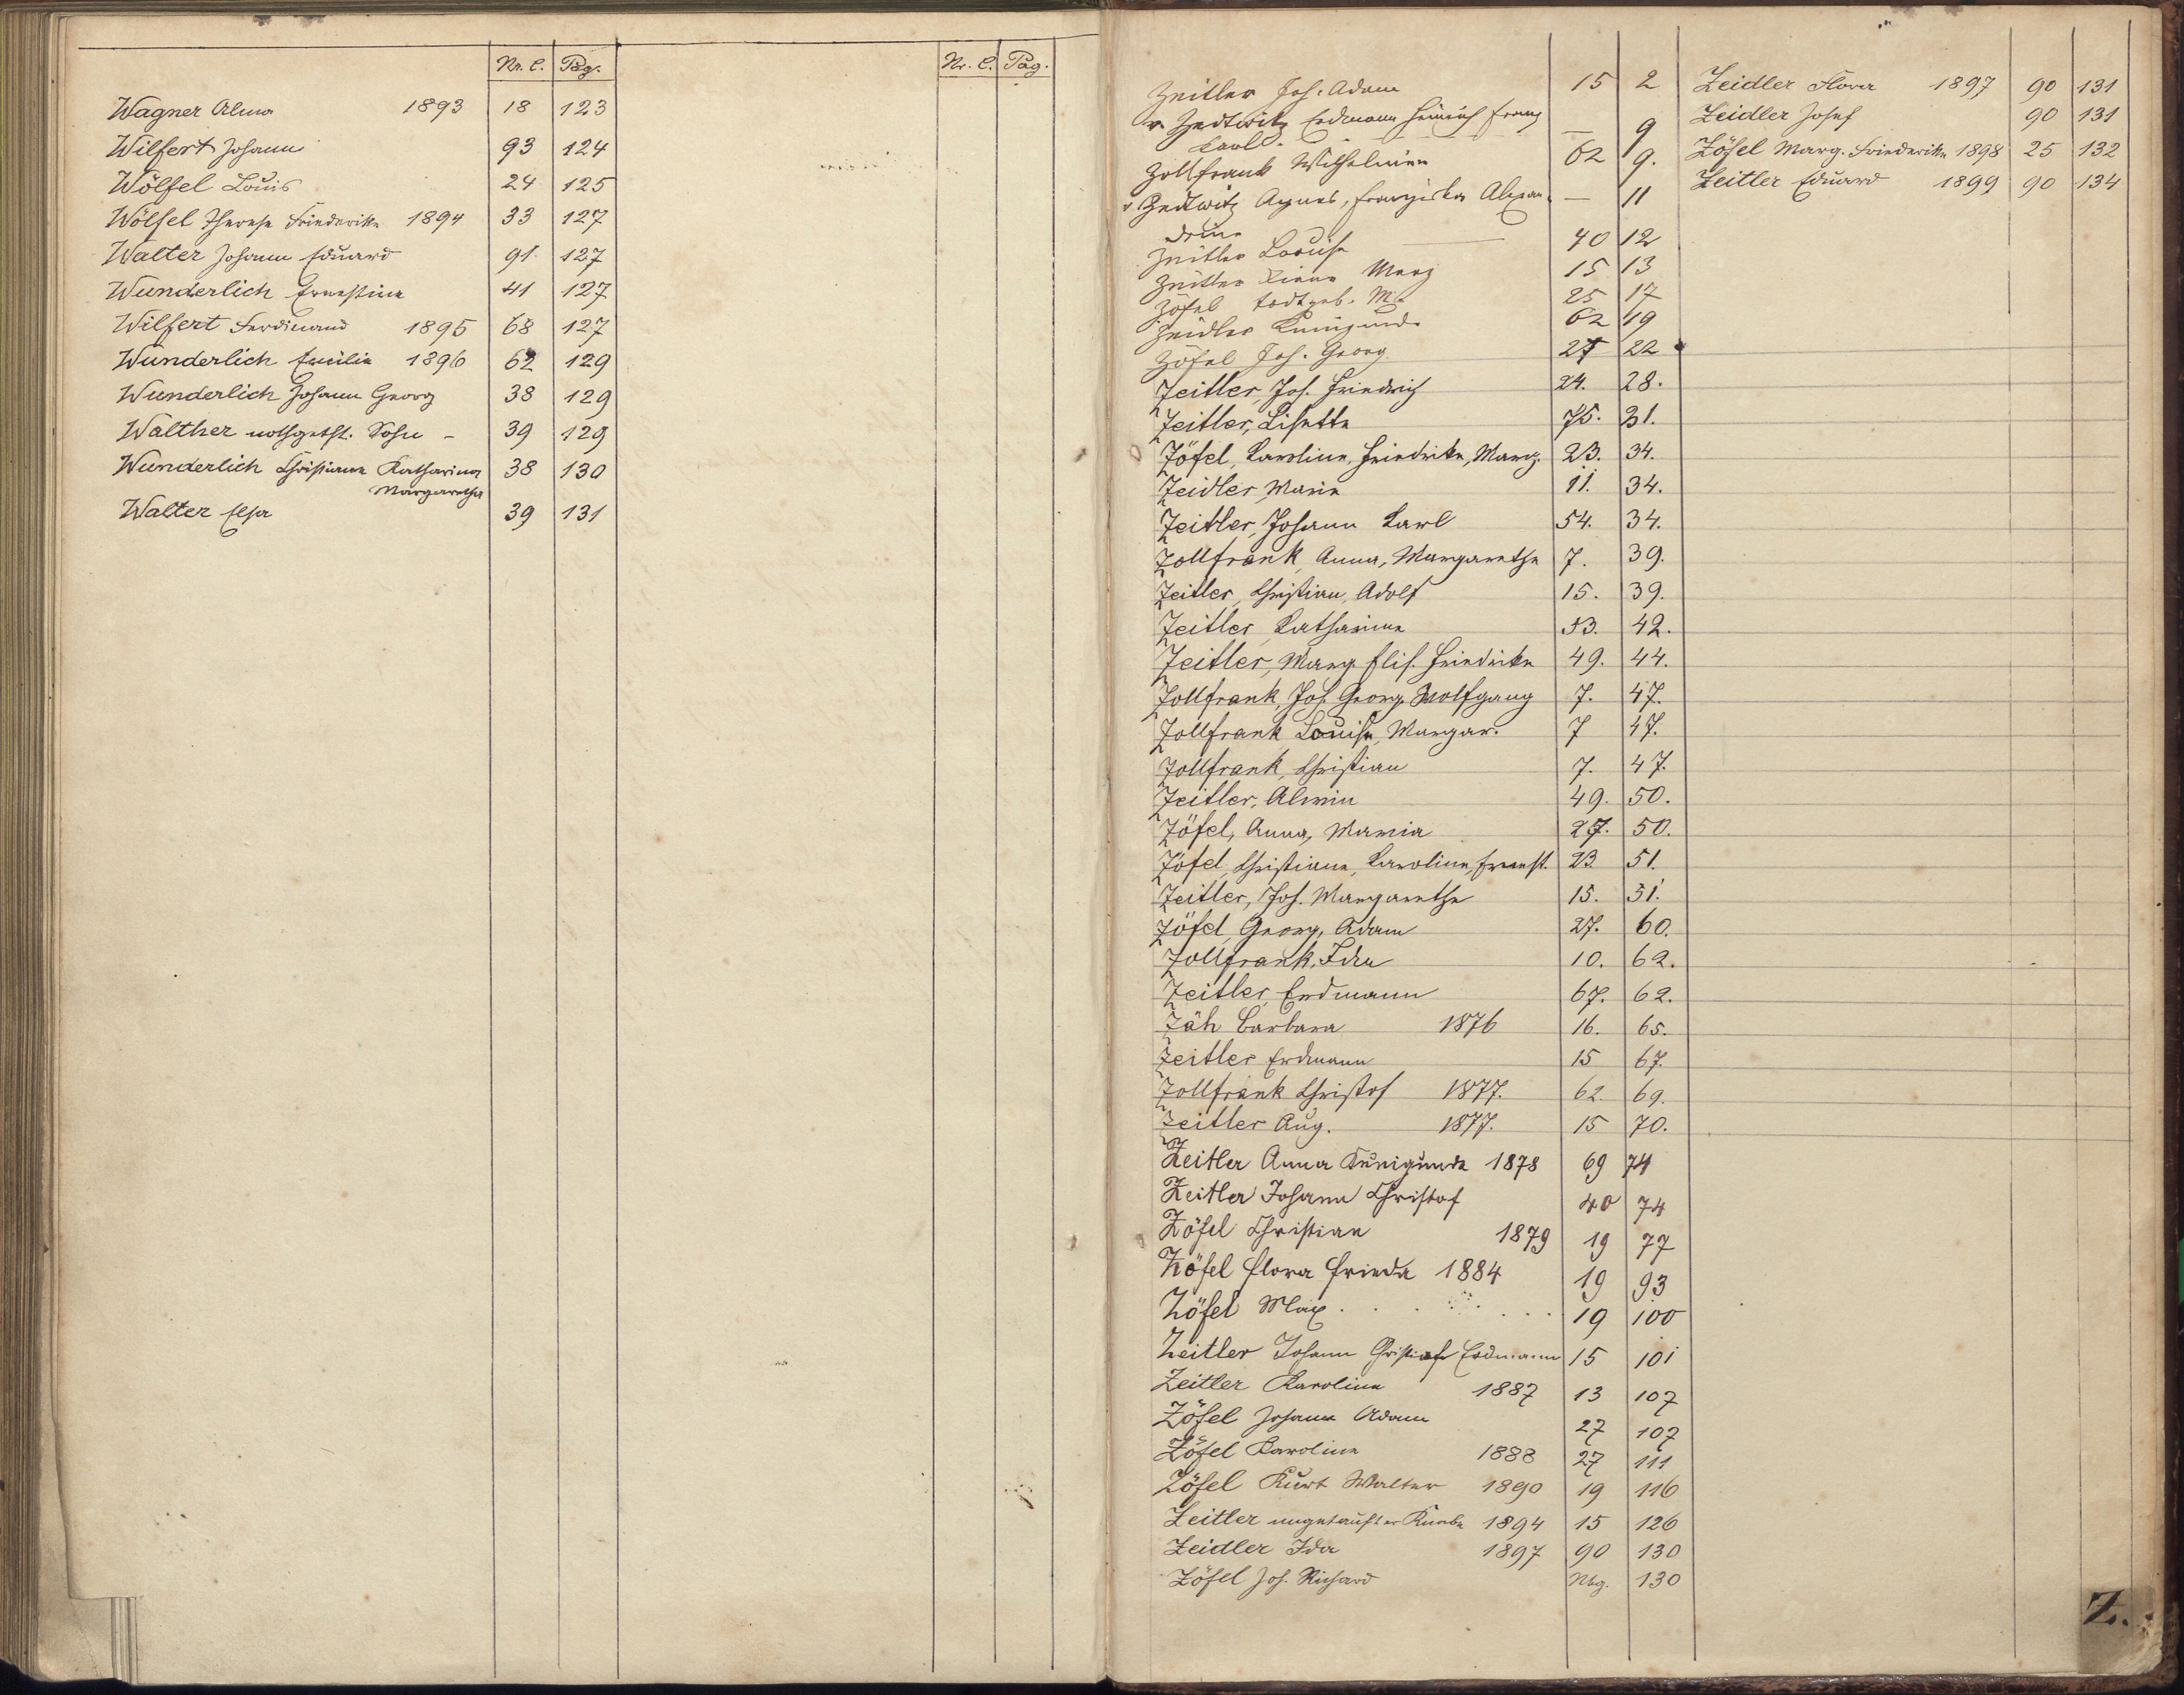 Nr. C. Pag. Nr. C. Pag.
Wagner Alma 1893 18 123
Wilfert Johann 93 124
Wölfel Louis 24 125
Wölfel Therese Friederike 1894 33 127
Walter Johann Eduard 91 127
Wunderlich Ernestine 41 127
Wilfert Ferdinand 1895 68 127
Wunderlich Emilie 1896 62 129
Wunderlich Johann Georg 38 129
Walther nothgetft. Sohn - 39 129
Wunderlich Christiana Katharina 38 130
Margaretha
Walter Elsa 39 131
Zeitler Joh. Adam 15 2
v. Zedtwitz Erdmann Heinrich Franz — 9
Karl.
Zollfrank Wilhelmine 62 9.
v Zedtwitz Agnes, Franziska Alexan- — 11
drine
Zeitler Louise 40 12
Zeitler Marg 15 13
Zöfel todtgeb. M. 25 17
Zeidler Kunigunde 62 19
Zöfel Joh. Georg 27 22
Zeitler, Joh. Friedrich 24. 28.
Zeitler, Lisette 75. 31.
Zöfel, Karoline, Friedrike, Marg. 23. 34.
Zeidler, Marie 11. 34.
Zeitler, Johann Karl 54. 34.
Zollfrank, Anna, Margarethe 7. 39.
Zeitler, Christian, Adolf 15. 39.
Zeitler, Katharine 53. 42.
Zeitler, Marg. Elis. Friedrike 49. 44.
Zollfrank, Joh. Georg, Wolfgang 7. 47.
Zollfrank Louise, Margar. 7 47.
Zollfrank, Christian 7. 47.
Zeitler, Alwin 49. 50.
Zöfel, Anna, Maria 27. 50.
Zöfel, Christiane, Karoline, Ernest. 23. 51.
Zeitler, Joh. Margarethe 15. 51.
Zöfel, Georg, Adam 27. 60.
Zollfrank, Ida 10. 62.
Zeitler, Erdmann 67. 62.
Zäh Barbara 1876 16. 65.
Zeitler Erdmann 15 67.
Zollfrank Christof 1877. 62. 69.
Zeitler Aug. 1877. 15 70.
Zeitler Anna Kunigunde 1878 69 74
Zeitler Johann Christof 40 74
Zöfel Christian 1879 19 77
Zöfel Flora Frieda 1884 19 93
Zöfel Max . . . . . . 19 100
Zeitler Johann Christiaf Erdmann 15 101
Zeitler Karoline 1887 13 107
Zöfel Johann Adam 27 107
Zöfel Karoline 1888 27 111
Zöfel Kurt Walter 1890 19 116
Zeitler ungetaufter Knabe 1894 15 126
Zeidler Ida 1897 90 130
Zöfel Joh. Richard Nbg. 130
Zeidler Flora 1897 90 131
Zeidler Josef 90 131
Zöfel Marg. Friederike 1898 25 132
Zeitler Eduard 1899 90 134
Z.